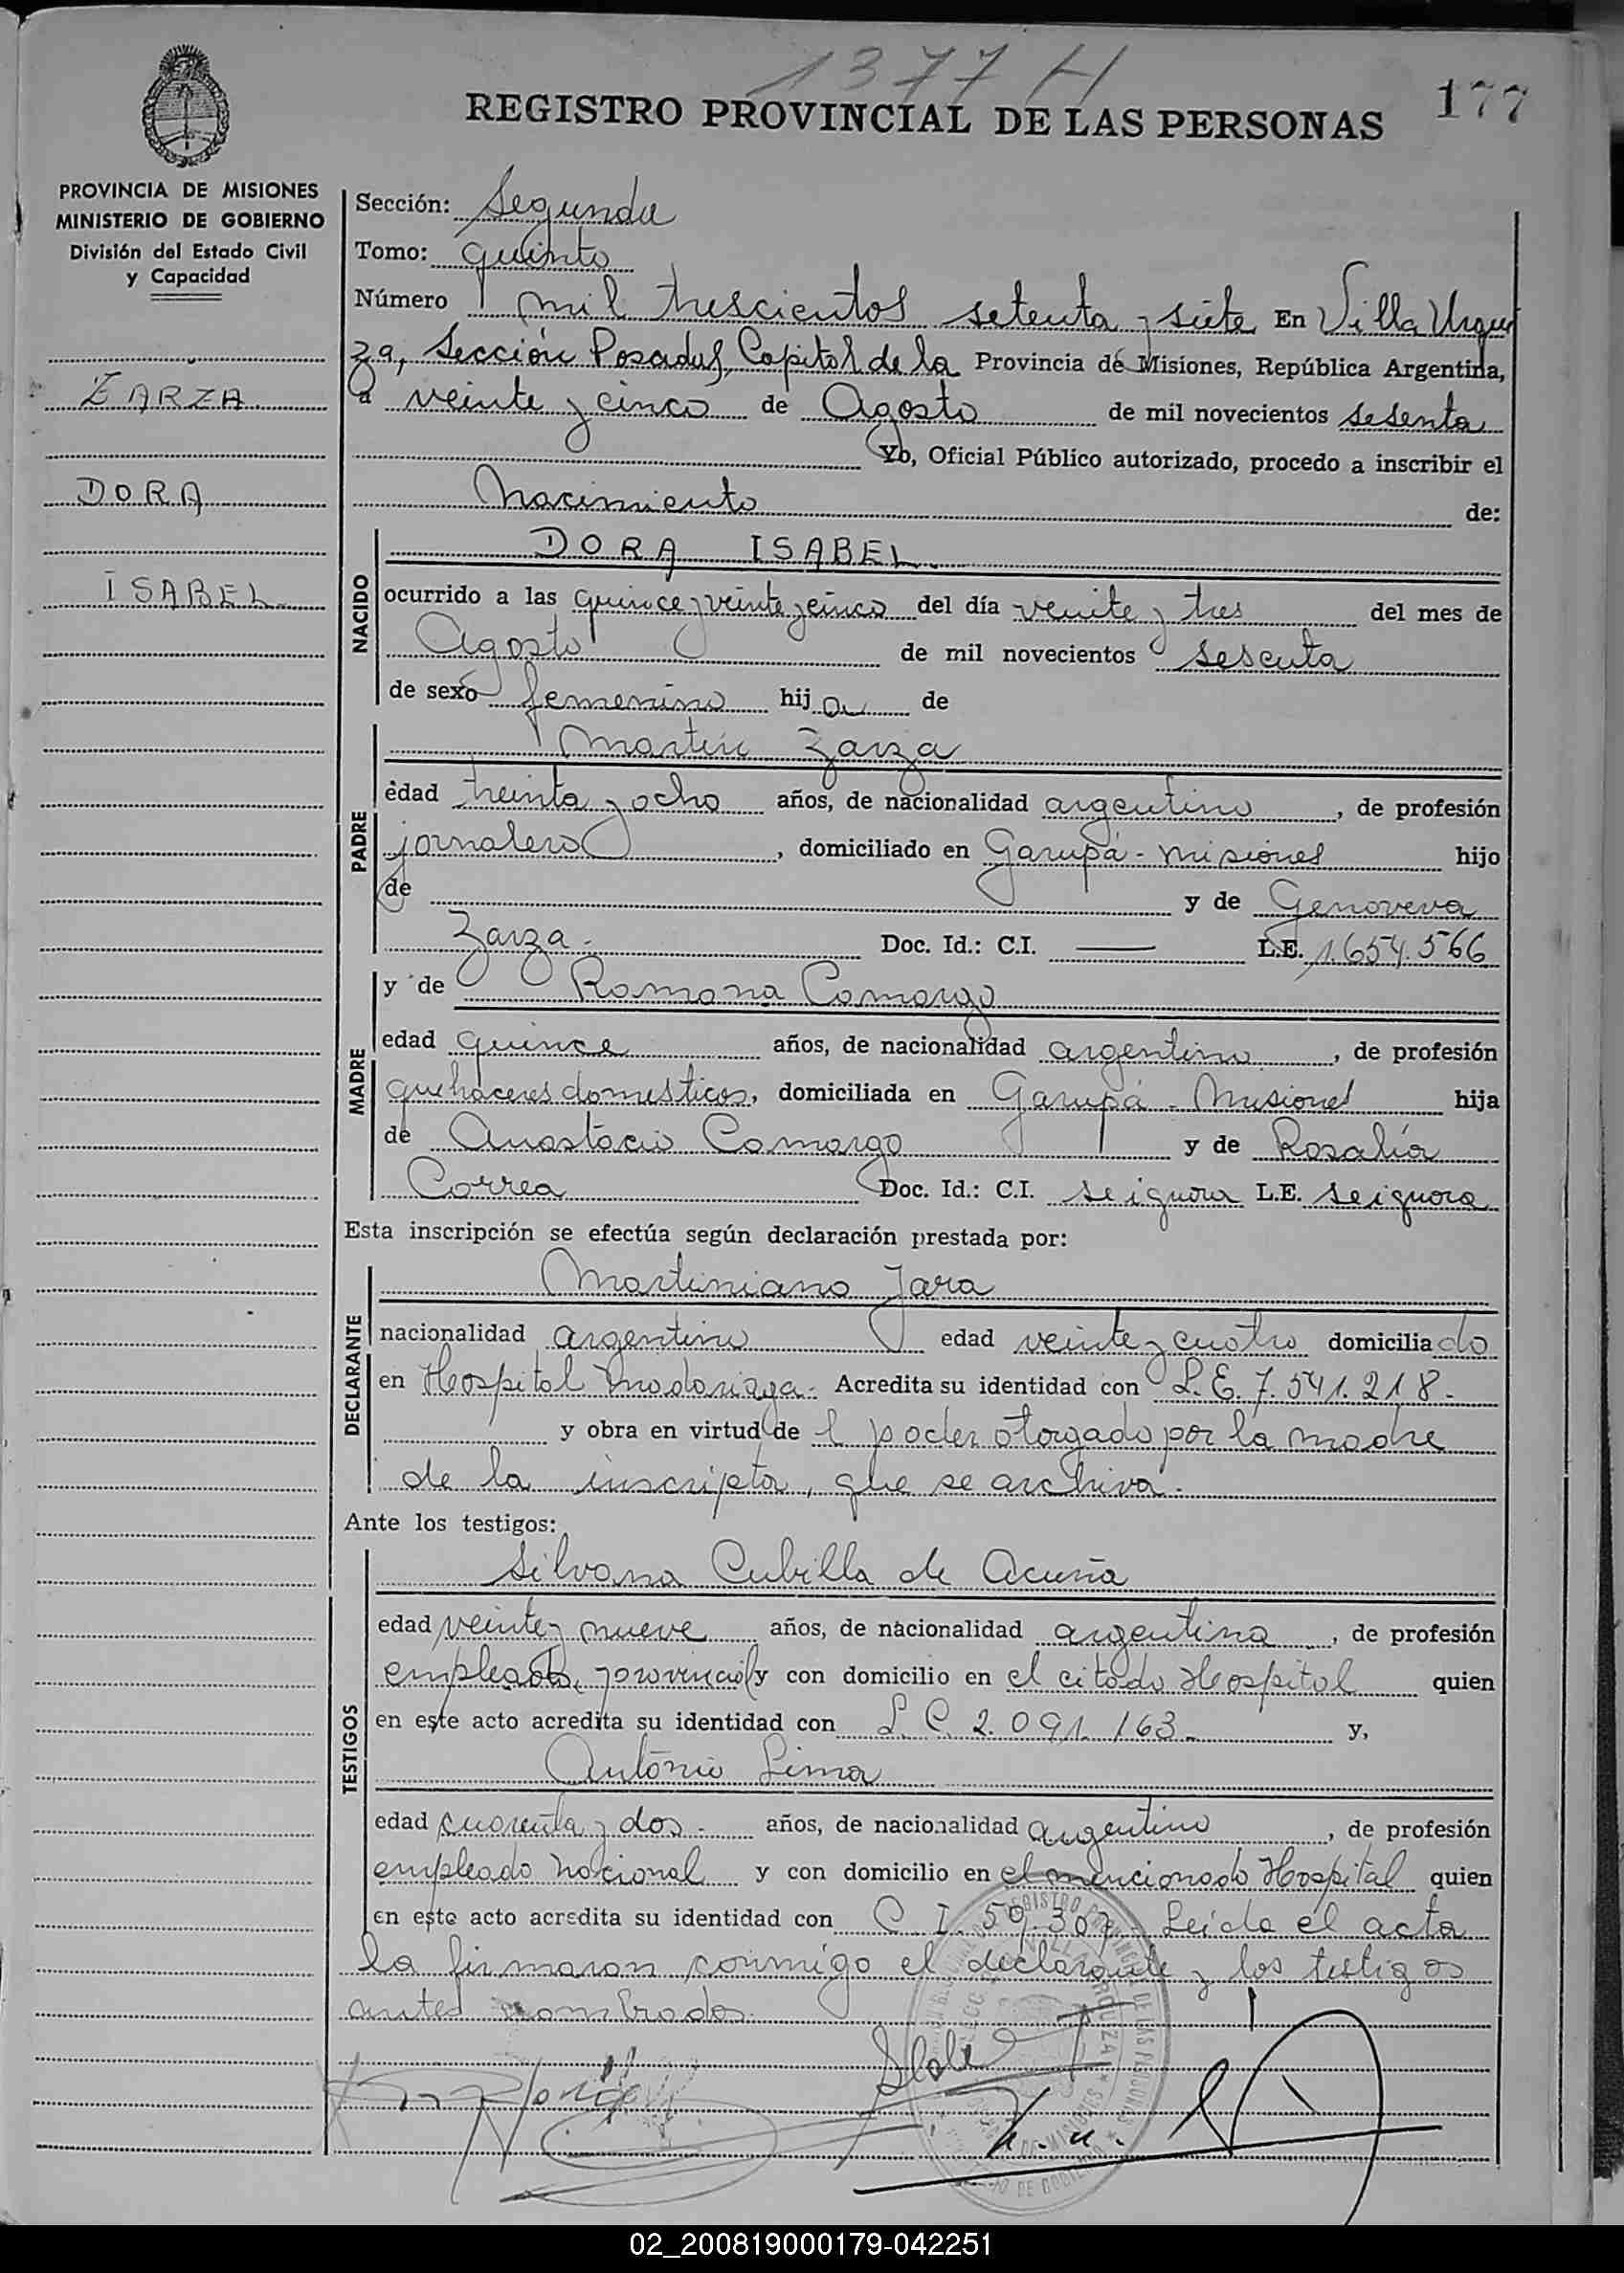 1377 H
177
REGISTRO PROVINCIAL DE LAS PERSONAS
PROVINCIA DE MISIONES
MINISTERIO DE GOBIERNO
División del Estado Civil
y Capacidad
ZARZA
DORA
ISABEL
Sección: Segunda
Tomo: quinto
Número mil trescientos setenta y siete En Villa Urqui
za, Sección Posadas, Capital de la Provincia de Misiones, República Argentina,
a veinte y cinco de Agosto de mil novecientos sesenta
Yo, Oficial Público autorizado, procedo a inscribir el
Nacimiento de:
NACIDO
DORA ISABEL
ocurrido a las quince y veinte y cinco del día veinte y tres del mes de
Agosto de mil novecientos sesenta
de sexo femenino hija de
PADRE
Martín Zarza
edad treinta y ocho años, de nacionalidad argentino, de profesión
jornalero, domiciliado en Garupá - Misiones hijo
de y de Genoveva
Zarza. Doc. Id.: C.I. —— L.E. 1.654.566
MADRE
y de Ramona Camargo
edad quince años, de nacionalidad argentina, de profesión
quehaceres domesticos, domiciliada en Garupá - Misiones hija
de Anastacio Camargo y de Rosalía
Correa Doc. Id.: C.I. se ignora L.E. se ignora
Esta inscripción se efectúa según declaración prestada por:
DECLARANTE
Martiniano Jara
nacionalidad argentino edad veinte y cuatro domiciliado
en Hospital Madariaga. Acredita su identidad con L.E. 7.541.218.
y obra en virtud de l poder otorgado por la madre
de la inscripta, que se archiva.
Ante los testigos:
TESTIGOS
Silvana Cubilla de Acuña
edad veinte y nueve años, de nacionalidad argentina, de profesión
empleada provincial y con domicilio en el citado Hospital quien
en este acto acredita su identidad con L.C. 2.091.163 y,
Antonio Lima
edad cuarenta y dos. años, de nacionalidad argentino, de profesión
empleado nacional y con domicilio en el mencionado Hospital quien
en este acto acredita su identidad con C.I. 59.307. Leída el acta
la firmaron conmigo el declarante y los testigos
antes nombrados.
02_200819000179-042251